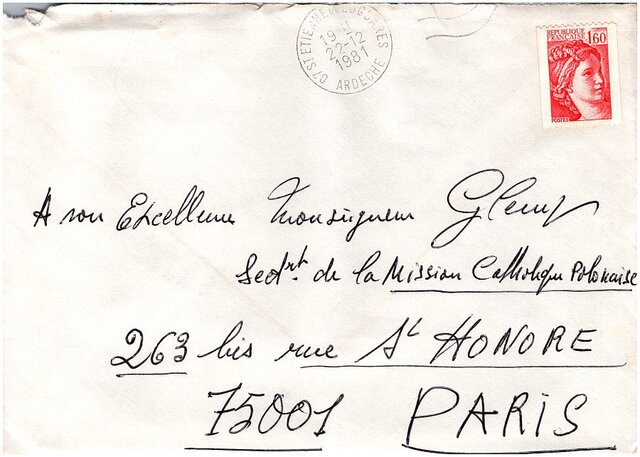 07 ST ETIENNE DE LUGDARES
19 H
22-12
1981
ARDECHE
REPUBLIQUE
FRANÇAISE 1,60
POSTES
A son Excellence Monseigneur Glemp
Secrt. de la Mission Catholique Polonaise
263 bis rue St HONORE
75001 PARIS